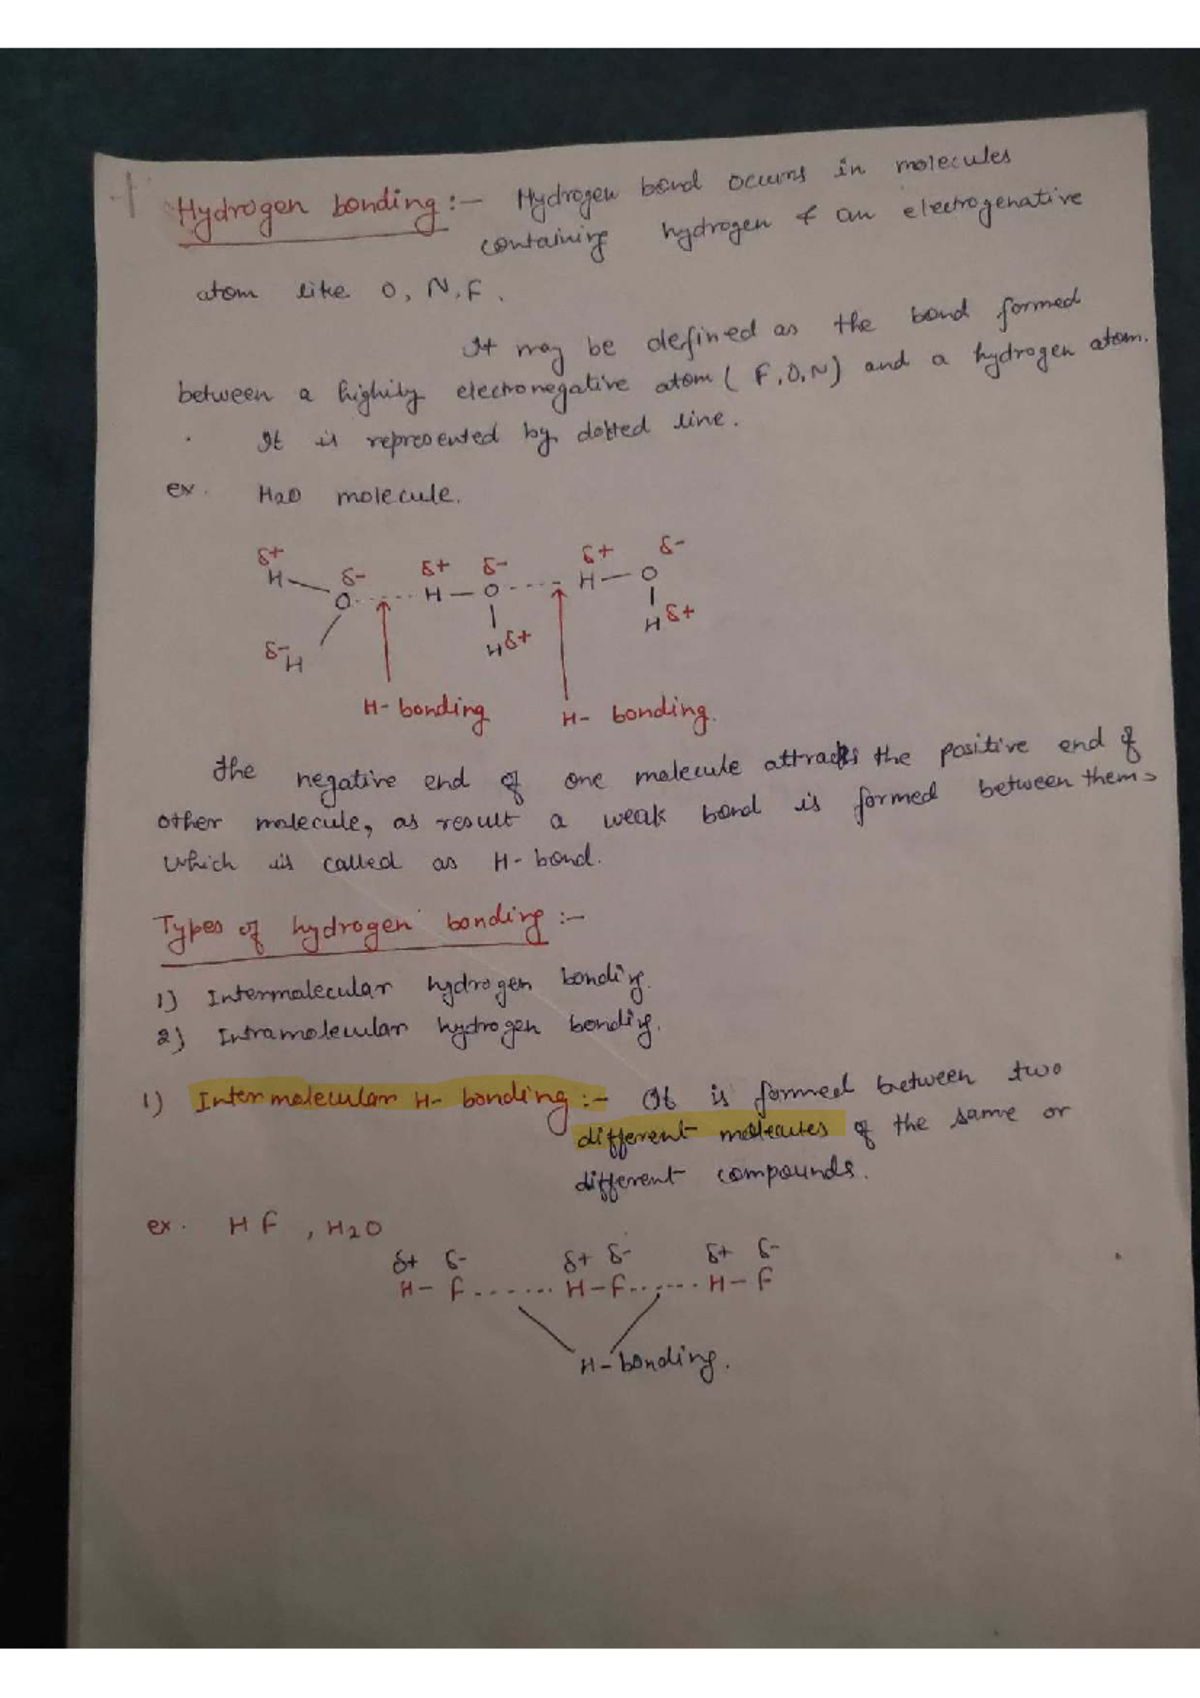 Hydrogen bonding :- Hydrogen bond occurs in molecules
containing hydrogen & an electrogenative
atom like O, N, F.
It may be defined as the bond formed
between a highily electronegative atom ( F, O, N) and a hydrogen atom.
It is represented by dotted line.
ex. H2O molecule.
δ+ δ- δ+ δ- δ+ δ-
H O ..... H — O ..... H — O
δ- H H δ+ H δ+
H- bonding H- bonding.
The negative end of one molecule attracts the positive end of
other molecule, as result a weak bond is formed between them
which is called as H- bond.
Types of hydrogen bonding :-
1) Intermolecular hydrogen bonding.
2) Intramolecular hydrogen bonding.
1) Intermolecular H- bonding :- It is formed between two
different molecules of the same or
different compounds.
ex. HF , H2O
δ+ δ- δ+ δ- δ+ δ-
H - F ....... H - F ...... H - F
H - bonding.